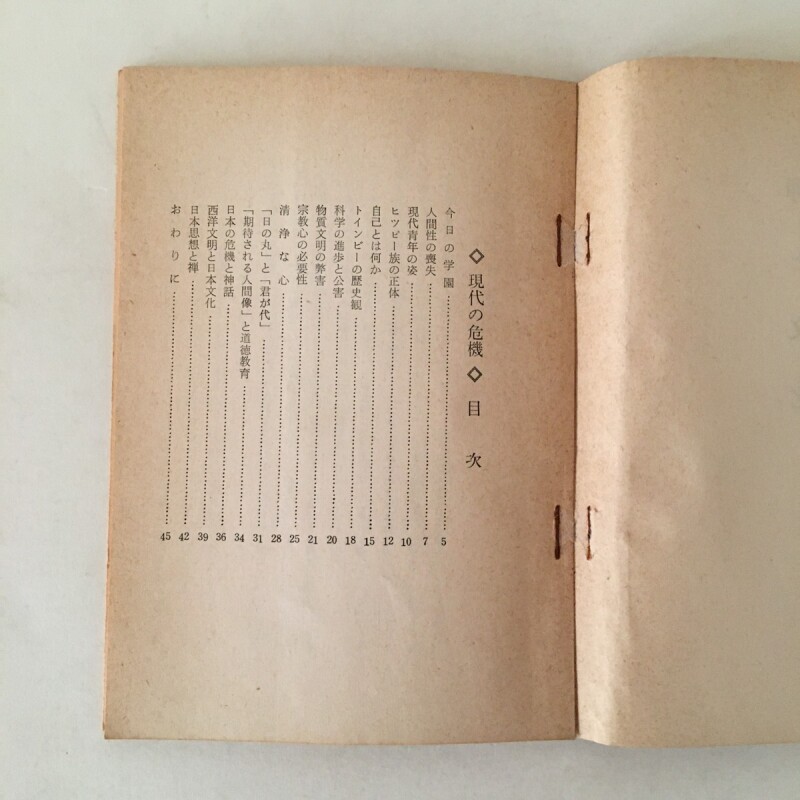 ◇現代の危機◇目次
今日の学園……5
人間性の喪失……7
現代青年の姿……10
ヒツピー族の正体……12
自己とは何か……15
トインビーの歴史観……18
科学の進歩と公害……20
物質文明の弊害……21
宗教心の必要性……25
清浄な心……28
「日の丸」と「君が代」……31
「期待される人間像」と道徳教育……34
日本の危機と神話……36
西洋文明と日本文化……39
日本思想と禅……42
おわりに……45